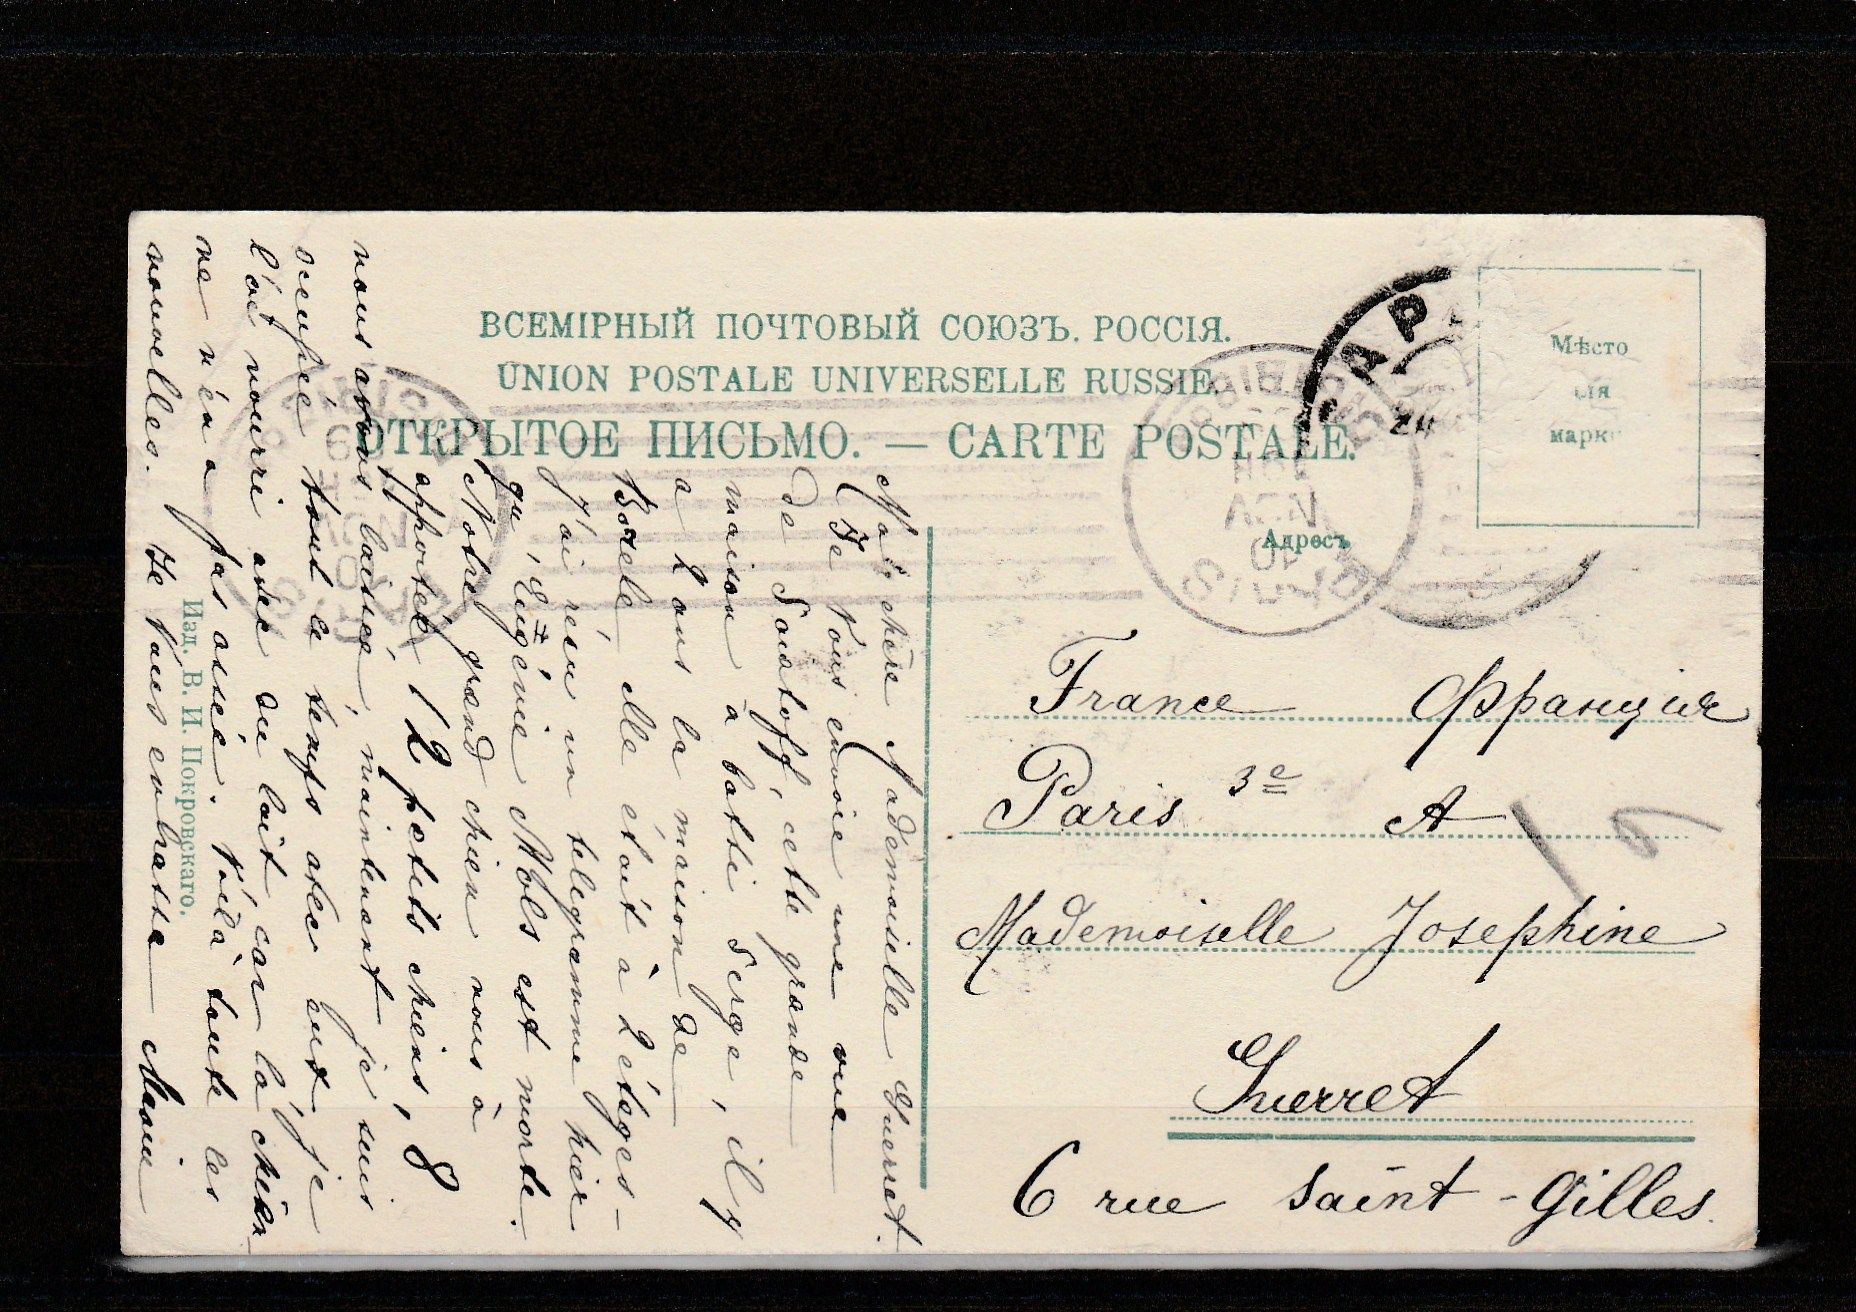 ВСЕМІРНЫЙ ПОЧТОВЫЙ СОЮЗЪ. РОССІЯ.
UNION POSTALE UNIVERSELLE RUSSIE.
ОТКРЫТОЕ ПИСЬМО. — CARTE POSTALE.
Мѣсто
для
марки
Адресъ
France Франція
Paris 3e A
Mademoiselle Josephine
Guerret
6 rue Saint-Gilles.
Ma chère Mademoiselle Guerret.
Je Vous envoie une vue
de Saratoff, cette grande
maison a bati Serge, il y
a 2 ans la maison de
elle était à 2 étages
J'ai résu un telegramme hier
qu'Eugénie Mols est morte.
Notre grand chien nous à
apportée 12 petits chiens, 8
nous avons laissée, maintenant je suis
occupée tout le temps avec eux, je
l'ai nourri avec du lait car la chien
ne n'en a pas assée. Voilà toute les
nouvelles. Je Vous embrasse
Изд. В. И. Покровскаго.
PARIS